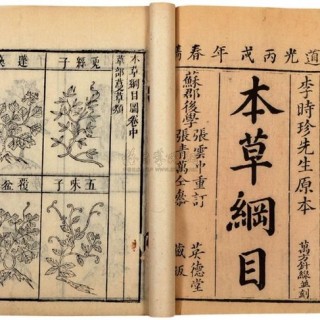 道光丙戌年春鐫
李時珍先生原本
萬方針線並刻
本草綱目
蘇郡後學
張雲中重訂
張青萬仝參
英德堂
藏板
本草綱目圖卷中
草部蔓草類
菟絲子
五味子
覆盆